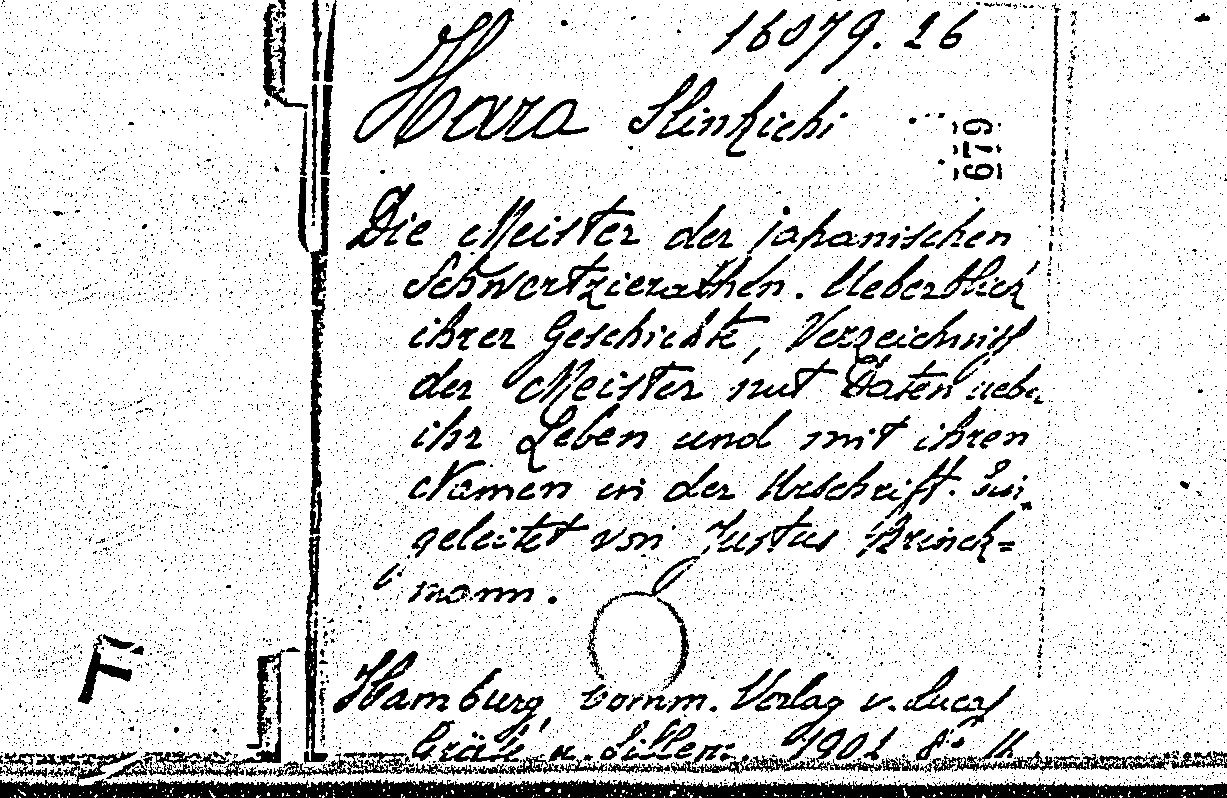 16079.26
Hara Shinkichi
679
Die Meister der japanischen
Schwertzierathen. Ueberblick
ihrer Geschichte, Verzeichniss
der Meister mit Daten uebe
ihr Leben und mit ihren
Namen in der Urschrift. Ein
geleitet von Justus Brinck=
mann.
Hamburg, Comm. Verlag v. Lucas
Gräfe u. Sillem. 1902 8°
F